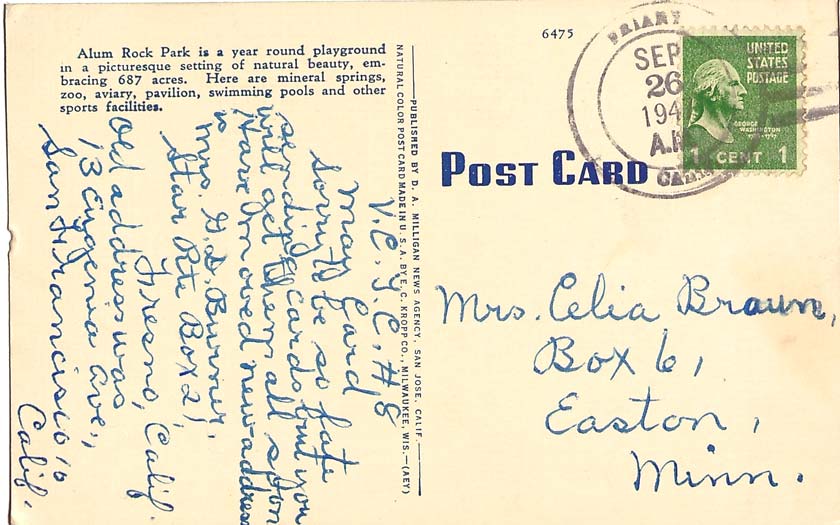 Alum Rock Park is a year round playground
in a picturesque setting of natural beauty, em-
bracing 687 acres. Here are mineral springs,
zoo, aviary, pavilion, swimming pools and other
sports facilities.
V.C.J.C. #8
May Card
Sorry to be so late
sending cards but you
will get them all soon
Have moved new address
is
Mrs. G.D. Burner.
Star Rte Box 21
Fresno, Calif.
Old address was
13 Eugenia Ave.,
San Francisco 10
Calif.
PUBLISHED BY D. A. MILLIGAN NEWS AGENCY, SAN JOSE, CALIF.
NATURAL COLOR POST CARD MADE IN U. S. A. BY E. C. KROPP CO., MILWAUKEE, WIS.—(AEY)
6475
POST CARD
SEP
26
194
A.M.
UNITED
STATES
POSTAGE
GEORGE
WASHINGTON
1 CENT 1
Mrs. Celia Braun,
Box 61
Easton,
Minn.